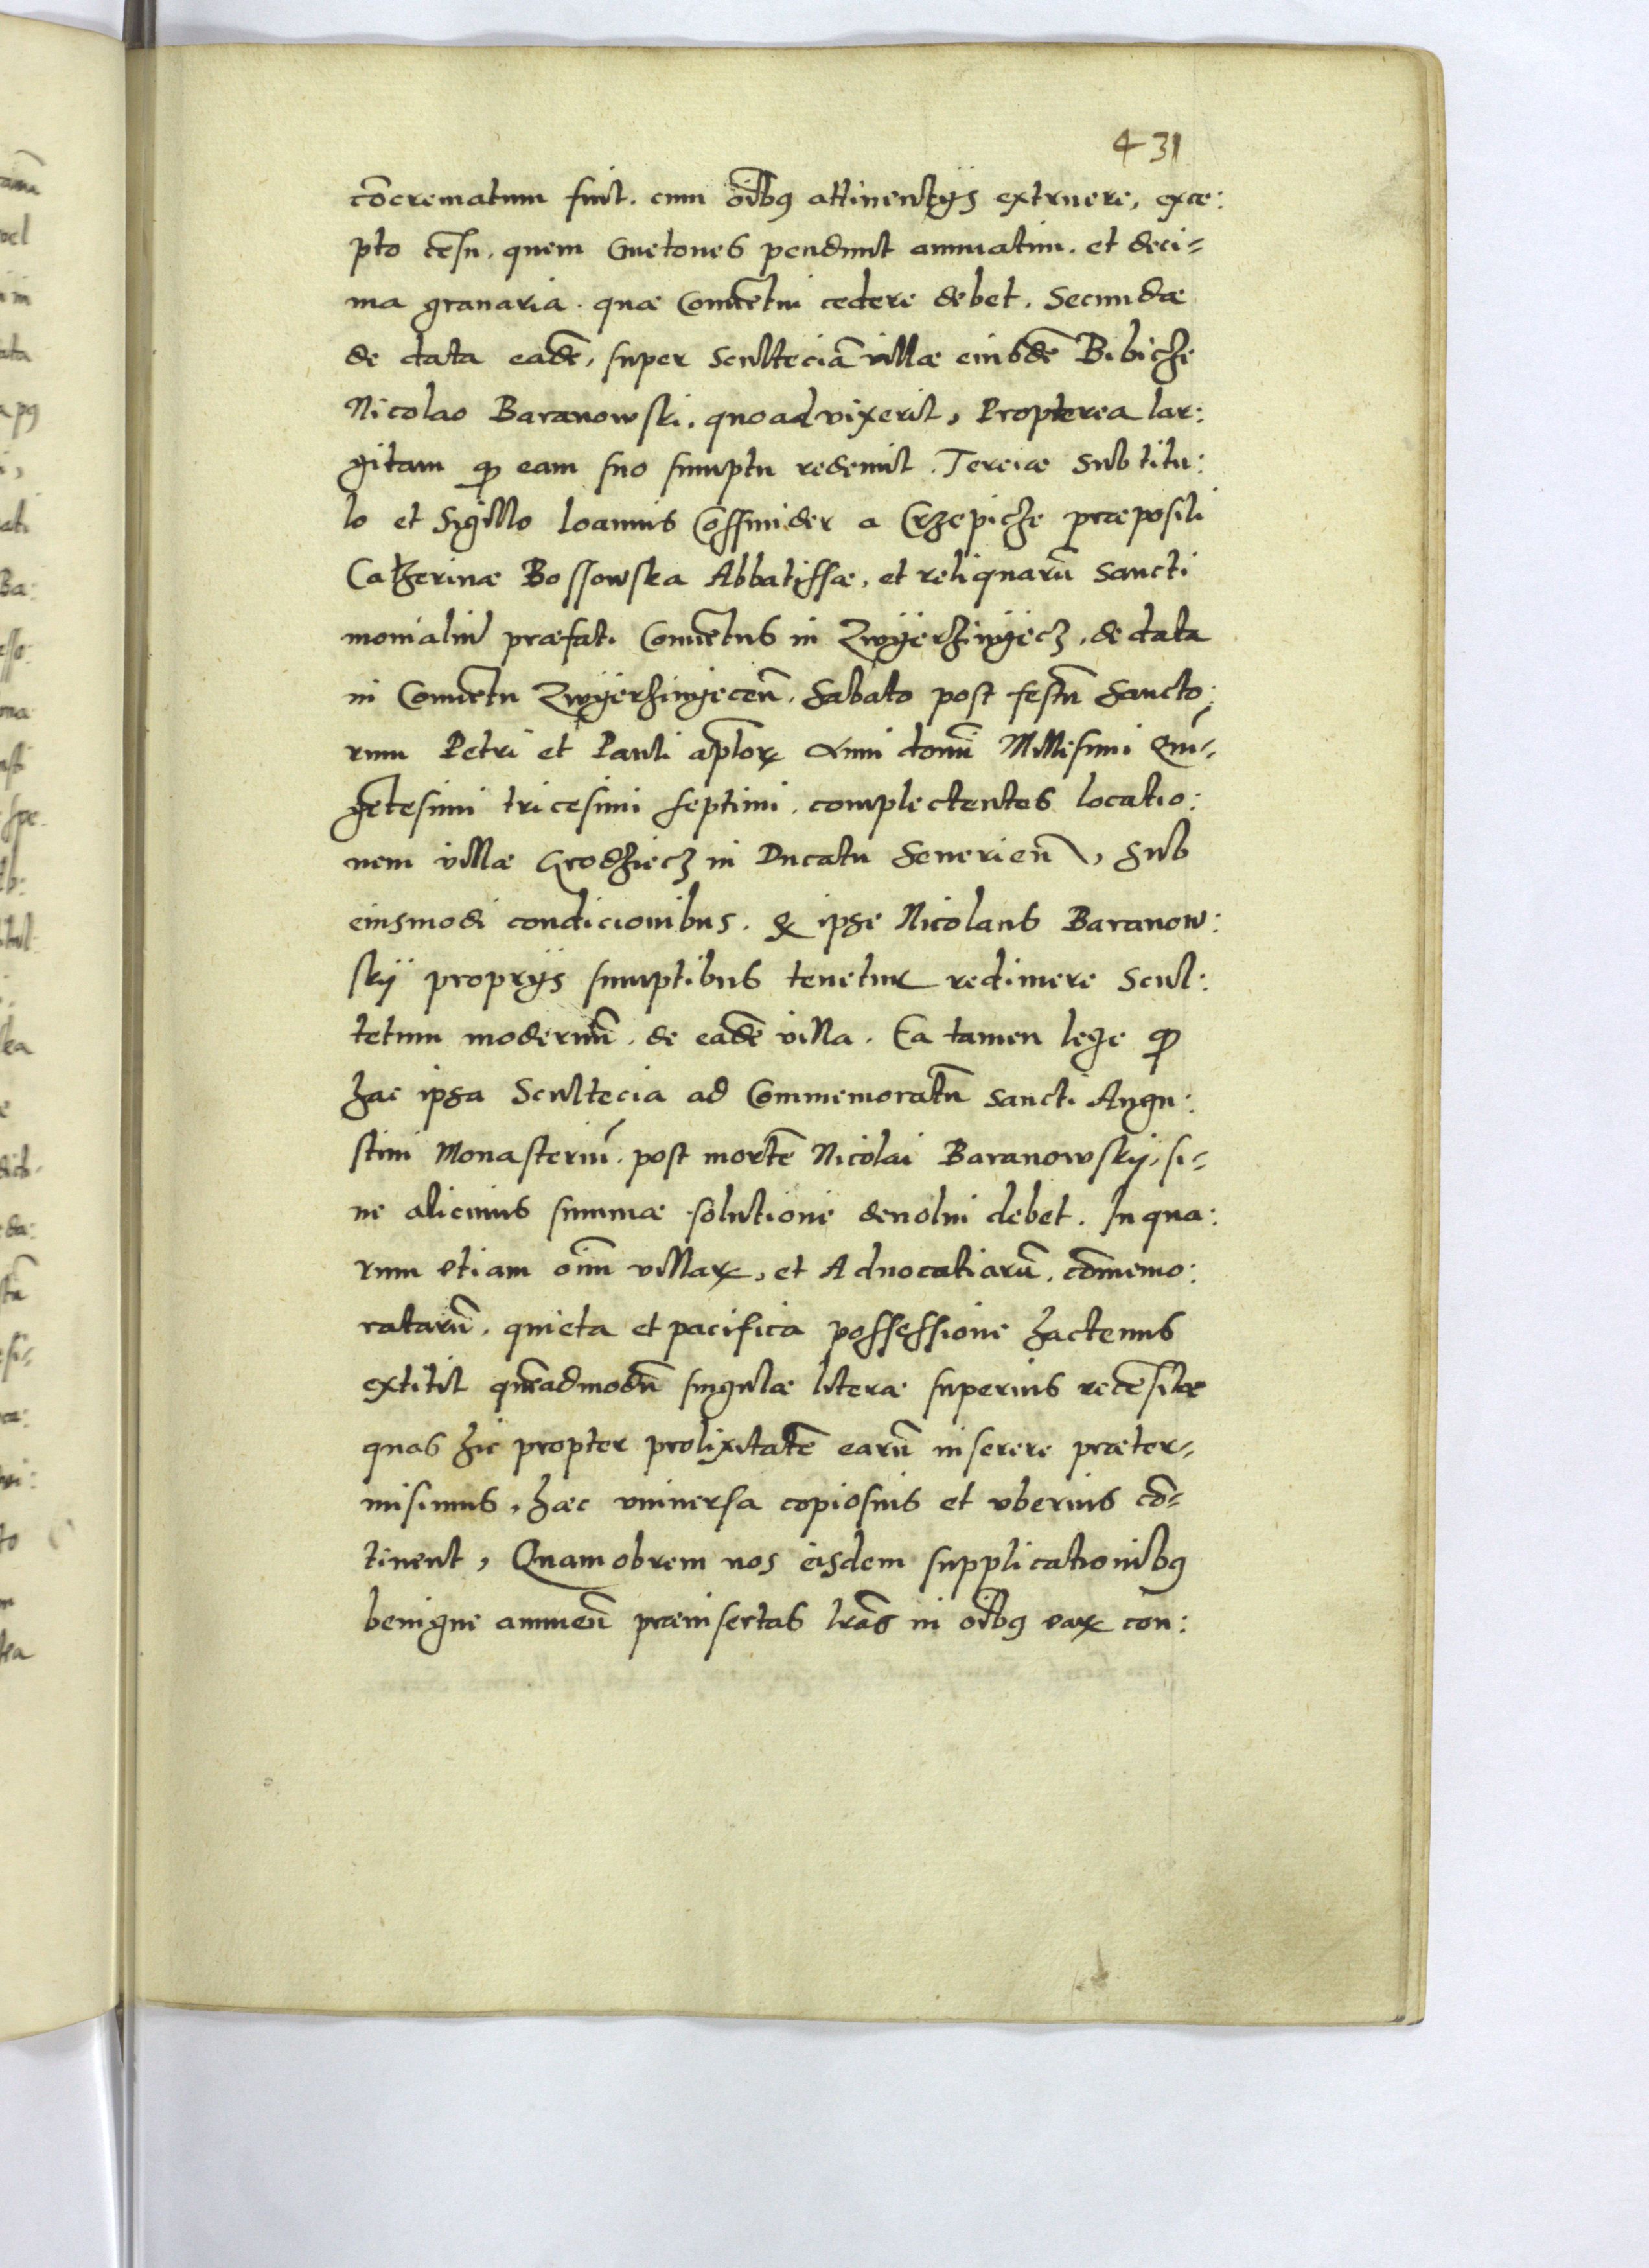 431
cōcrematum fuit. cum oībꝯ attinentijs extruere, exce:
pto cēsu. quem Cmetones pendunt annuatim. et deci-
ma granaria. quæ Conuētui cedere debet. Secundæ
de data eadē, super Sculteciā villæ eiusdē Bibicze
Nicolao Baranowski. quoad vixerit, Propterea lar:
gitam ꝙ eam suo sumptu redemit. Tereiæ sub titu:
lo et Sigillo Ioannis Cossmider a Crzepicze præpositi
Catherinæ Bossowska Abbatissæ, et reliquarū Sancti
monialiū præfati Conuētus in Zwÿerzinÿecz, de data
in Conuētu Zwÿerzinÿeceñ. Sabato post festū Sancto:
rum Petri et Pauli aptoꝝ Anni domī Millesimi Quī-
gētesimi tricesimi septimi. complectentes locatio:
nem villæ Grodziecz in Ducatu Seuerieñ, sub
eiusmodi condicionibus. ꝙ ipse Nicolaus Baranow:
skij proprijs sumptibus tenetur redimere Scul:
tetum modernū. de eadē villa. Ea tamen lege ꝙ
hæc ipsa Scultecia ad Commemoratū Sancti Augu:
stini Monasteriū. post mortē Nicolai Baranowskij, si-
ne alicuius summæ solutione deuolui debet. In qua:
rum etiam oīm villaꝝ, et Aduocatiarū. cōmemo:
ratarū. quieta et pacifica possessione hactenus
extitit quēadmodū singulæ literæ superius recēsitæ
quas hic propter prolixitatē earū inserere præter-
misimus, hæc vniuersa copiosius et vberius cō-
tinent, Quamobrem nos eisdem supplicationibꝯ
benigne annueñ præinsertas lrās in oībꝯ eaꝝ con: